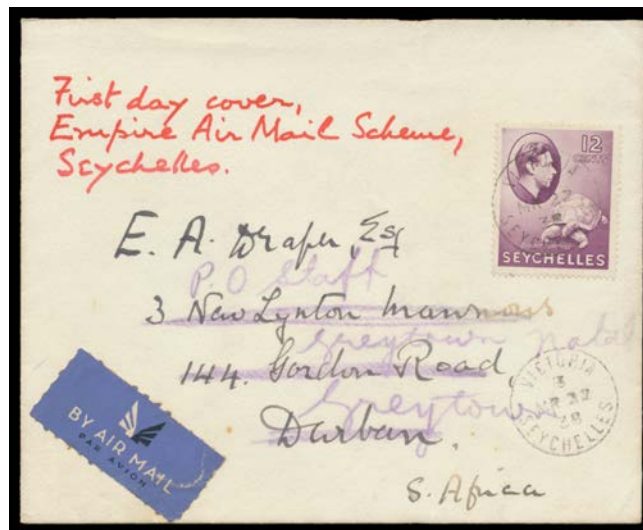 First day cover,
Empire Air Mail Scheme,
Seychelles.
12
CENTS
SEYCHELLES
E. A. Draper, Esq
P.O Staff
3 New Lynton Mansions
Greytown Natal
144. Gordon Road
Greytown
Durban.
S. Africa
VICTORIA
3
38
SEYCHELLES
BY AIR MAIL
PAR AVION